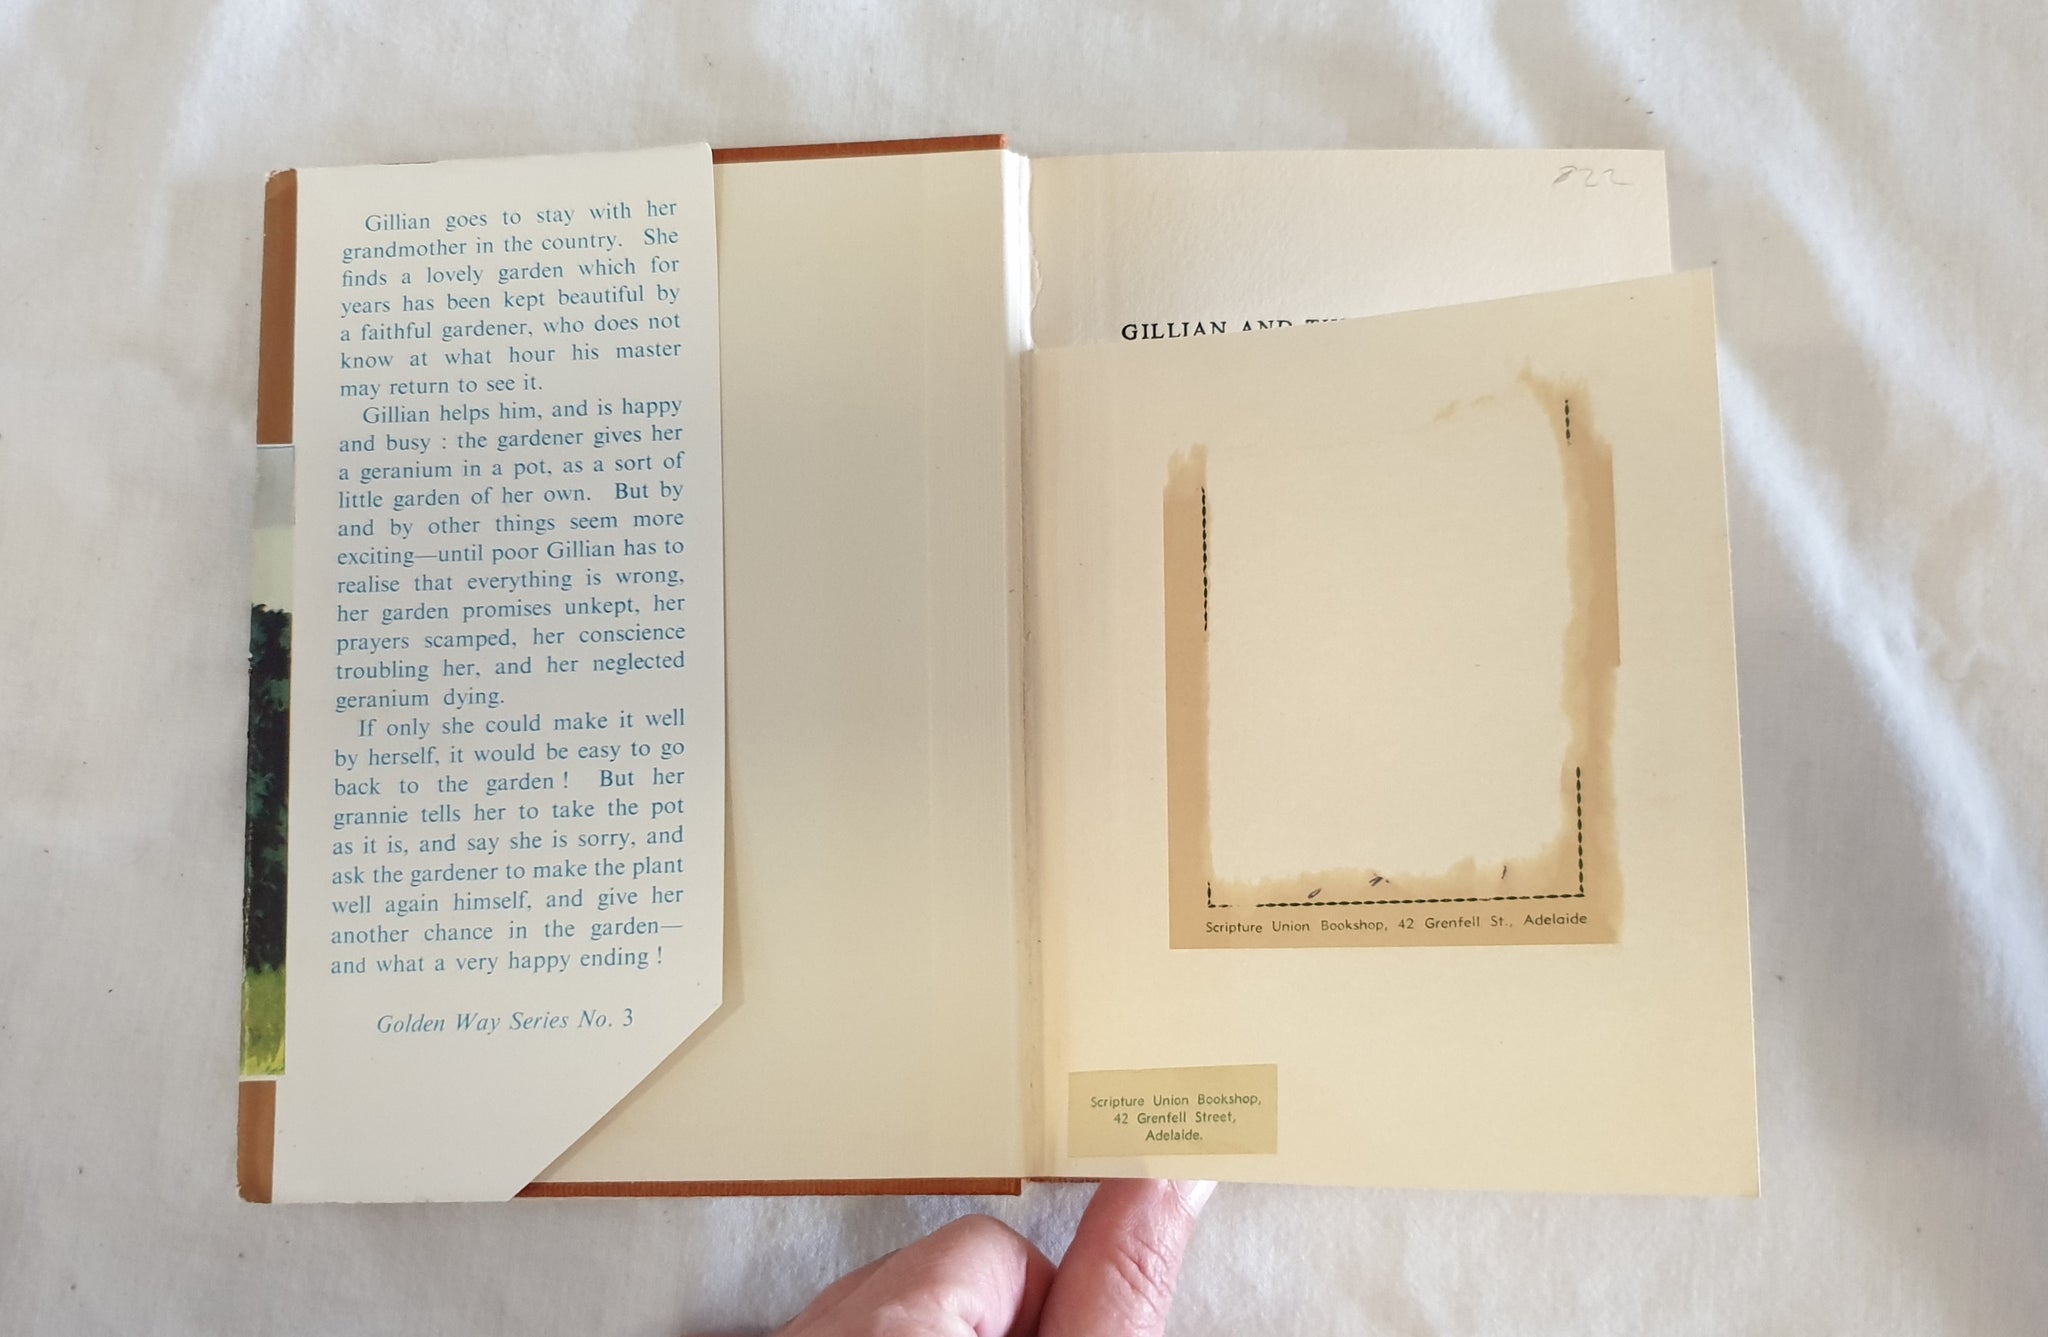 Gillian goes to stay with her
grandmother in the country. She
finds a lovely garden which for
years has been kept beautiful by
a faithful gardener, who does not
know at what hour his master
may return to see it.
Gillian helps him, and is happy
and busy : the gardener gives her
a geranium in a pot, as a sort of
little garden of her own. But by
and by other things seem more
exciting—until poor Gillian has to
realise that everything is wrong,
her garden promises unkept, her
prayers scamped, her conscience
troubling her, and her neglected
geranium dying.
If only she could make it well
by herself, it would be easy to go
back to the garden ! But her
grannie tells her to take the pot
as it is, and say she is sorry, and
ask the gardener to make the plant
well again himself, and give her
another chance in the garden—
and what a very happy ending !
Golden Way Series No. 3
GILLIAN AND
Scripture Union Bookshop, 42 Grenfell St., Adelaide
Scripture Union Bookshop,
42 Grenfell Street,
Adelaide.